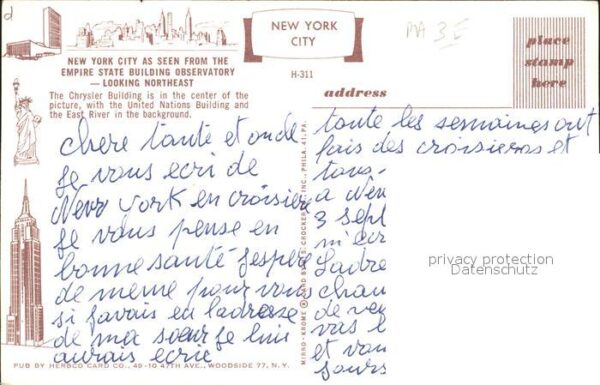 NEW YORK CITY AS SEEN FROM THE
EMPIRE STATE BUILDING OBSERVATORY
— LOOKING NORTHEAST
The Chrysler Building is in the center of the
picture, with the United Nations Building and
the East River in the background.
chere tante et oncle
je vous ecri de
New york en croisier
je vous pense en
bonne santé jespere
de meme pour vous
si javais eu ladresse
de ma sœur je lui
aurais ecrie
PUB BY HERBCO CARD CO., 49-10 47TH AVE., WOODSIDE 77, N.Y.
MIRRO-KROME ® CARD BY H.S. CROCKER CO., INC., PHILA. 41, PA.
NEW YORK
CITY
H-311
address
place
stamp
here
d
toute les semaines ont
fais des croisieres et
tous
a New
3 sept
m'ecr
Ladre
chau
de ve
vas l
et vou
jours
privacy protection
Datenschutz